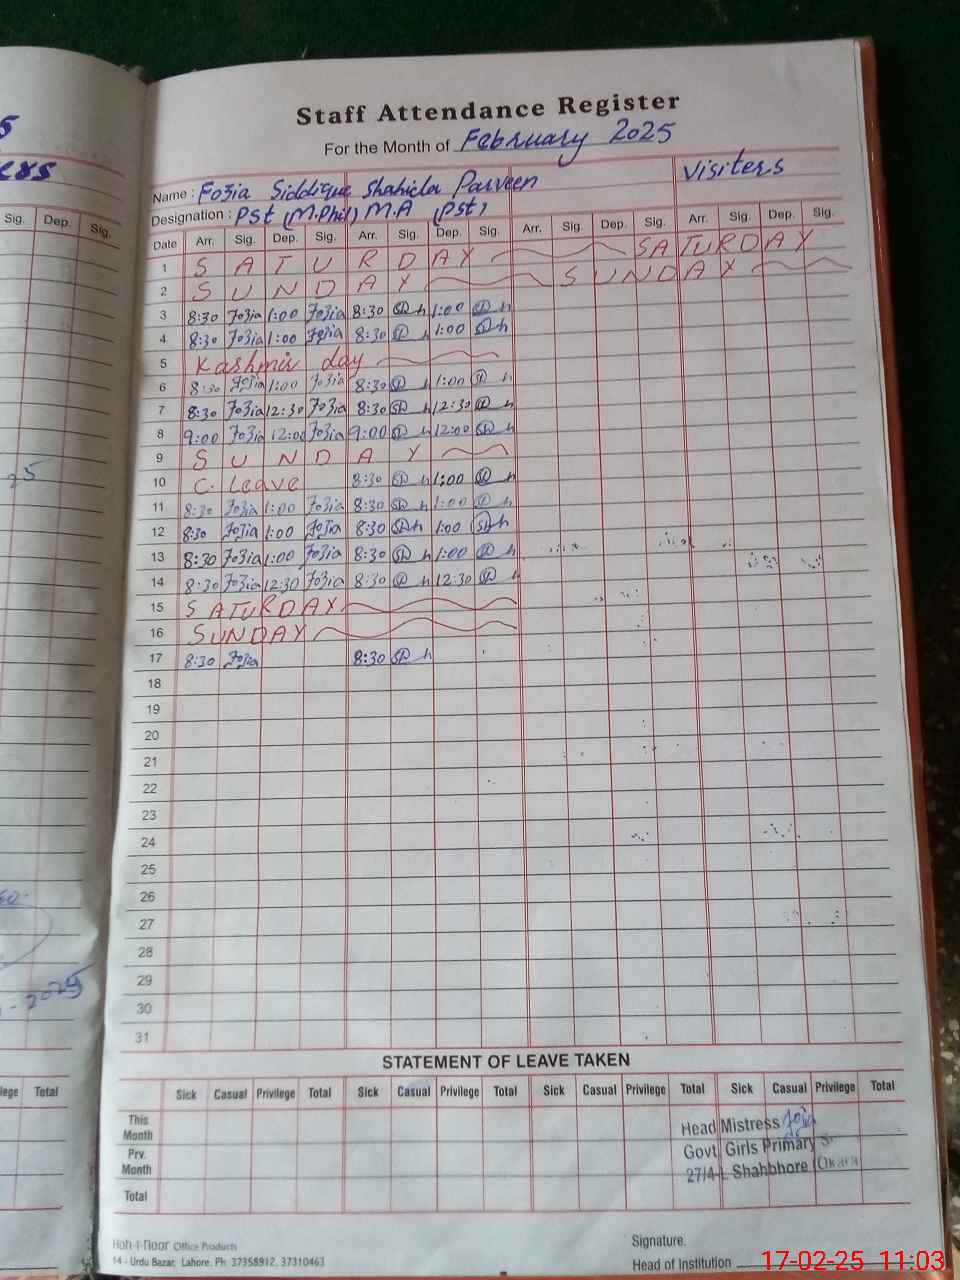 5
Sig. Dep. Sig.
Staff Attendance Register
For the Month of February 2025
Name : Fozia Siddique Shahida Parveen Visiters
Designation : PST (M.Phil) M.A (PST)
Date Arr. Sig. Dep. Sig. Arr. Sig. Dep. Sig. Arr. Sig. Dep. Sig. Arr. Sig. Dep. Sig.
1 SATURDAY SATURDAY
2 SUNDAY SUNDAY
3 8:30 Fozia 1:00 Fozia 8:30 1:00
4 8:30 Fozia 1:00 Fozia 8:30 1:00
5 Kashmir day
6 8:30 Fozia 1:00 Fozia 8:30 1:00
7 8:30 Fozia 12:30 Fozia 8:30 12:30
8 9:00 Fozia 12:00 Fozia 9:00 12:00
9 SUNDAY
10 C. Leave 8:30 1:00
11 8:30 Fozia 1:00 Fozia 8:30 1:00
12 8:30 Fozia 1:00 Fozia 8:30 1:00
13 8:30 Fozia 1:00 Fozia 8:30 1:00
14 8:30 Fozia 12:30 Fozia 8:30 12:30
15 SATURDAY
16 SUNDAY
17 8:30 Fozia 8:30
18
19
20
21
22
23
24
25
26
27
28
29
30
31
2025
STATEMENT OF LEAVE TAKEN
Total
Sick Casual Privilege Total Sick Casual Privilege Total Sick Casual Privilege Total Sick Casual Privilege Total
This Month
Prv. Month
Total
Head Mistress Fozia
Govt Girls Primary S.
27/4-L Shahbhore Okara
Koh-i-Noor Office Products
14 - Urdu Bazar, Lahore. Ph: 37358912, 37310463
Signature.
Head of Institution
17-02-25 11:03